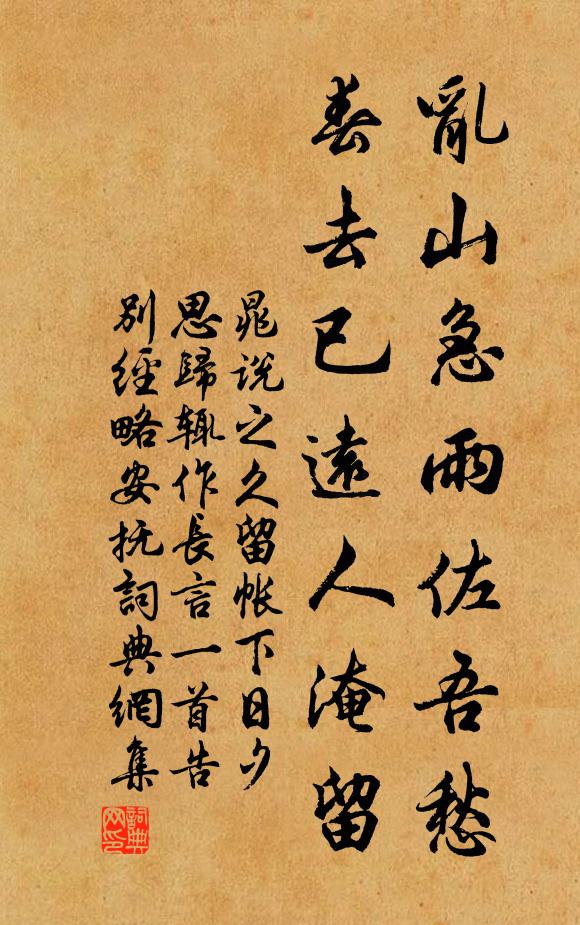 亂山急雨佐吾愁
春去已遠人淹留
晁說之久留帳下日夕
思歸輒作長言一首告
別經略安抚詞典網集
詞典网印